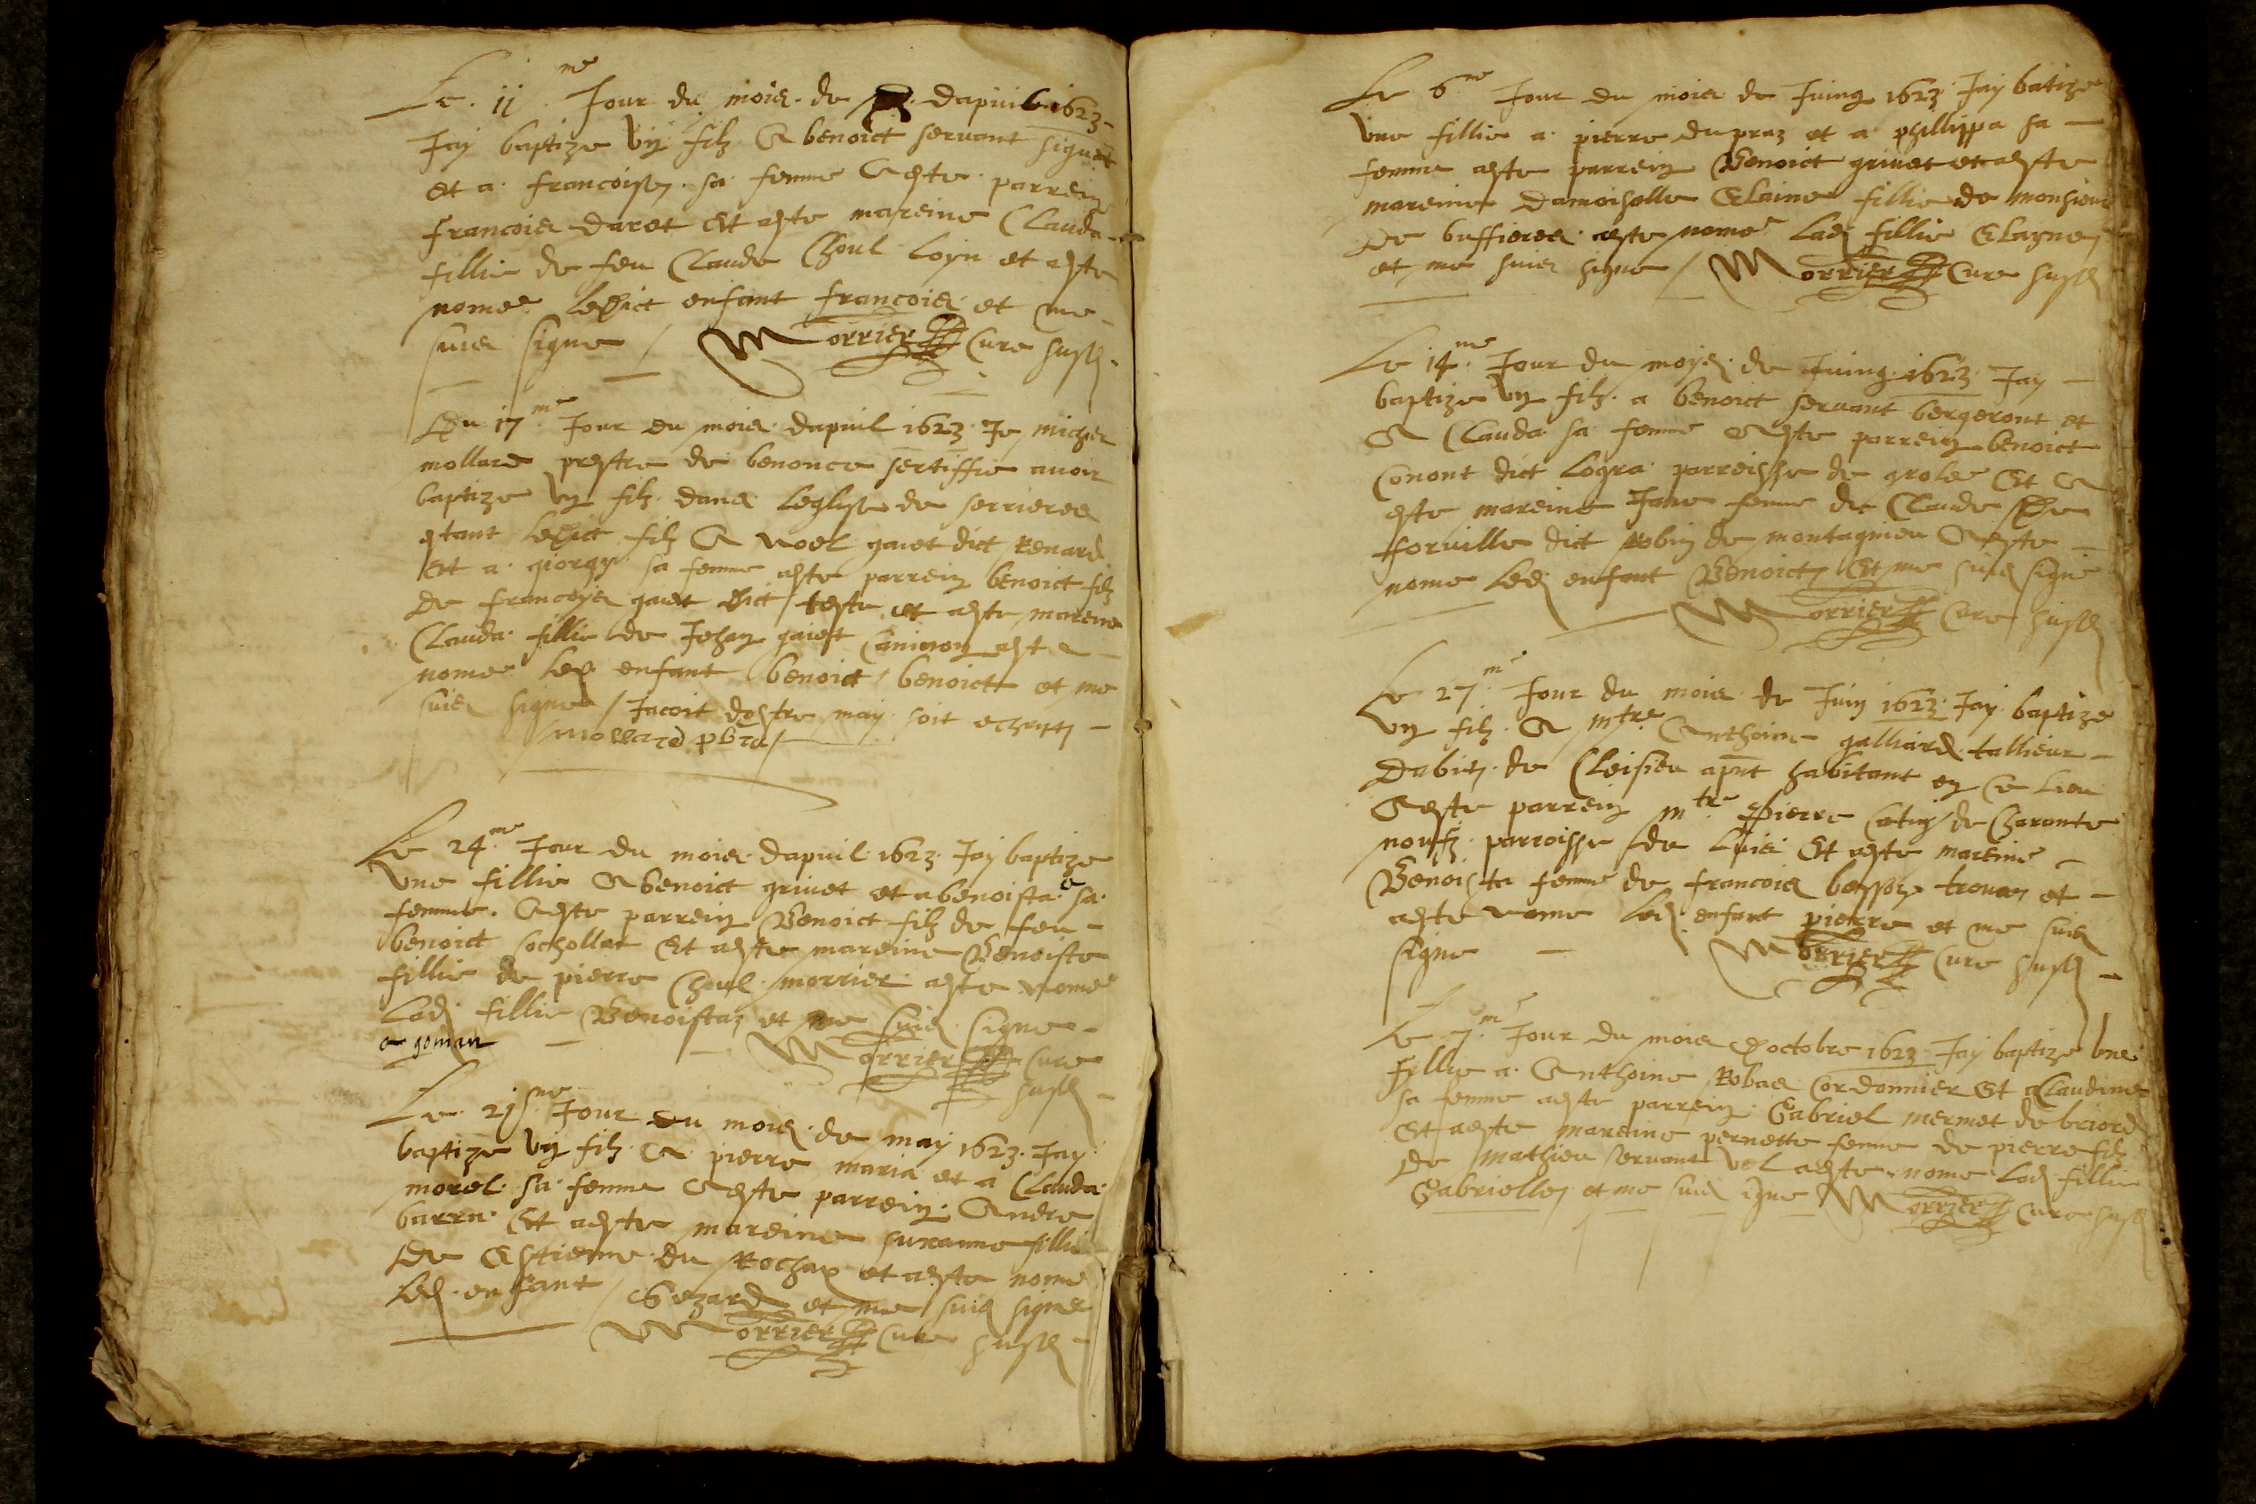 Le 11me Jour du mois de dapvril 1623
Jay baptize ung filz A benoict servant signat
et a francoise sa femme A este parrein
francois daret Et a este mareine Clauda
fillie de feu Claude Choul Loyn et a este
nome ledict enfant francois et me
suis signe / Morrier Cure susd
Du 17me Jour du mois dapvril 1623 Je michel
mollard prestre de benonce sertiffie avoir
baptize ung filz dans leglise de serrieres
estant ledict filz A noel gaiet dict Renard
Et a giorgy sa femme a este parrein benoict filz
de francoys gaiet dict teste et a este mareine
Clauda fillie de Jehan gaiet este
nome led enfant benoict / benoict et me
suis signe / Jacoit destre may soit escript
Mollard pbre
Le 24me Jour du mois dapvril 1623 Jay baptize
une fillie A benoict grivet et a benoista sa
femme. A este parrein Benoict filz de feu
benoict sochollat Et a este mareine Benoiste
fillie de pierre Choul morrier a este nome
Lad fillie Benoista et me suis signe
Morrier Cure
susd
Le 21me Jour du mois de may 1623 Jay
baptize ung filz A pierre maria et a Clauda
morel sa femme A este parrein Andre
barra Et a este mareine susanne fillie
de Estienne du Rochay et a este nome
Led enfant Cezard et me suis signe
Morrier Cure susd
Le 6me Jour du mois de Juing 1623 Jay batize
une fillie a pierre dupraz et a phillippa sa
femme a este parrein Benoict grivet et a este
mareine damoiselle Elaine fillie de monsieur
De buffieres a este nome Lad fillie Elayne
et me suis signe / Morrier Cure susd
Le 14me Jour du moys de Juing 1623 Jay
baptize ung filz a benoict servant bergeront et
A Clauda sa femme A este parrein benoict
Conont dict Logra parroisse de grolee Et A
este mareine Jane femme de Claude
forville dict Robin de montagnieu A este
nome Led enfant Benoict Et me suis signe
Morrier Cure susd
Le 27me Jour du mois de Juin 1623 Jay baptize
ung filz A mtre Anthoine galliard tallieur
Dabis de Cleisieu apnt habitant en ce Lieu
A este parrein mtre Pierre de Charante
noufz parroisse de Luis Et a este mareine
Benoista femme de francois besson et
a este nome Led enfant pierre et me suis
signe Morrier Cure susd
Le 7me Jour du mois doctobre 1623 Jay baptize une
fillie a Anthoine Robas Cordonnier Et a Claudine
sa femme a este parrein Gabriel mermet de briord
Et a este mareine pernette femme de pierre filz
de Mathieu servant vel a este nome Lad fillie
Gabrielle et me suis signe Morrier Cure susd